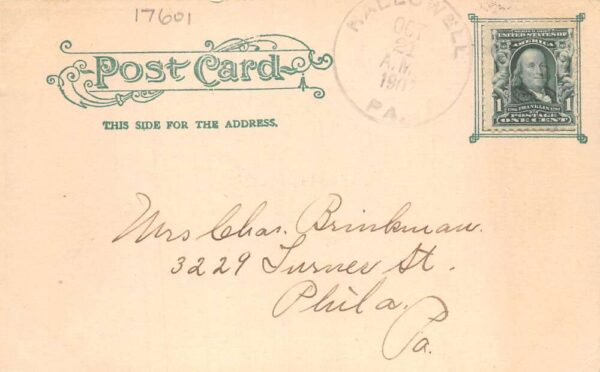 17601
Post Card
THIS SIDE FOR THE ADDRESS.
HALLOWELL
OCT
A.M.
PA.
UNITED STATES
OF AMERICA
1 FRANKLIN 1
POSTAGE
ONE CENT
Mrs Chas. Brinkman.
3229 Turner St.
Phila.
Pa.